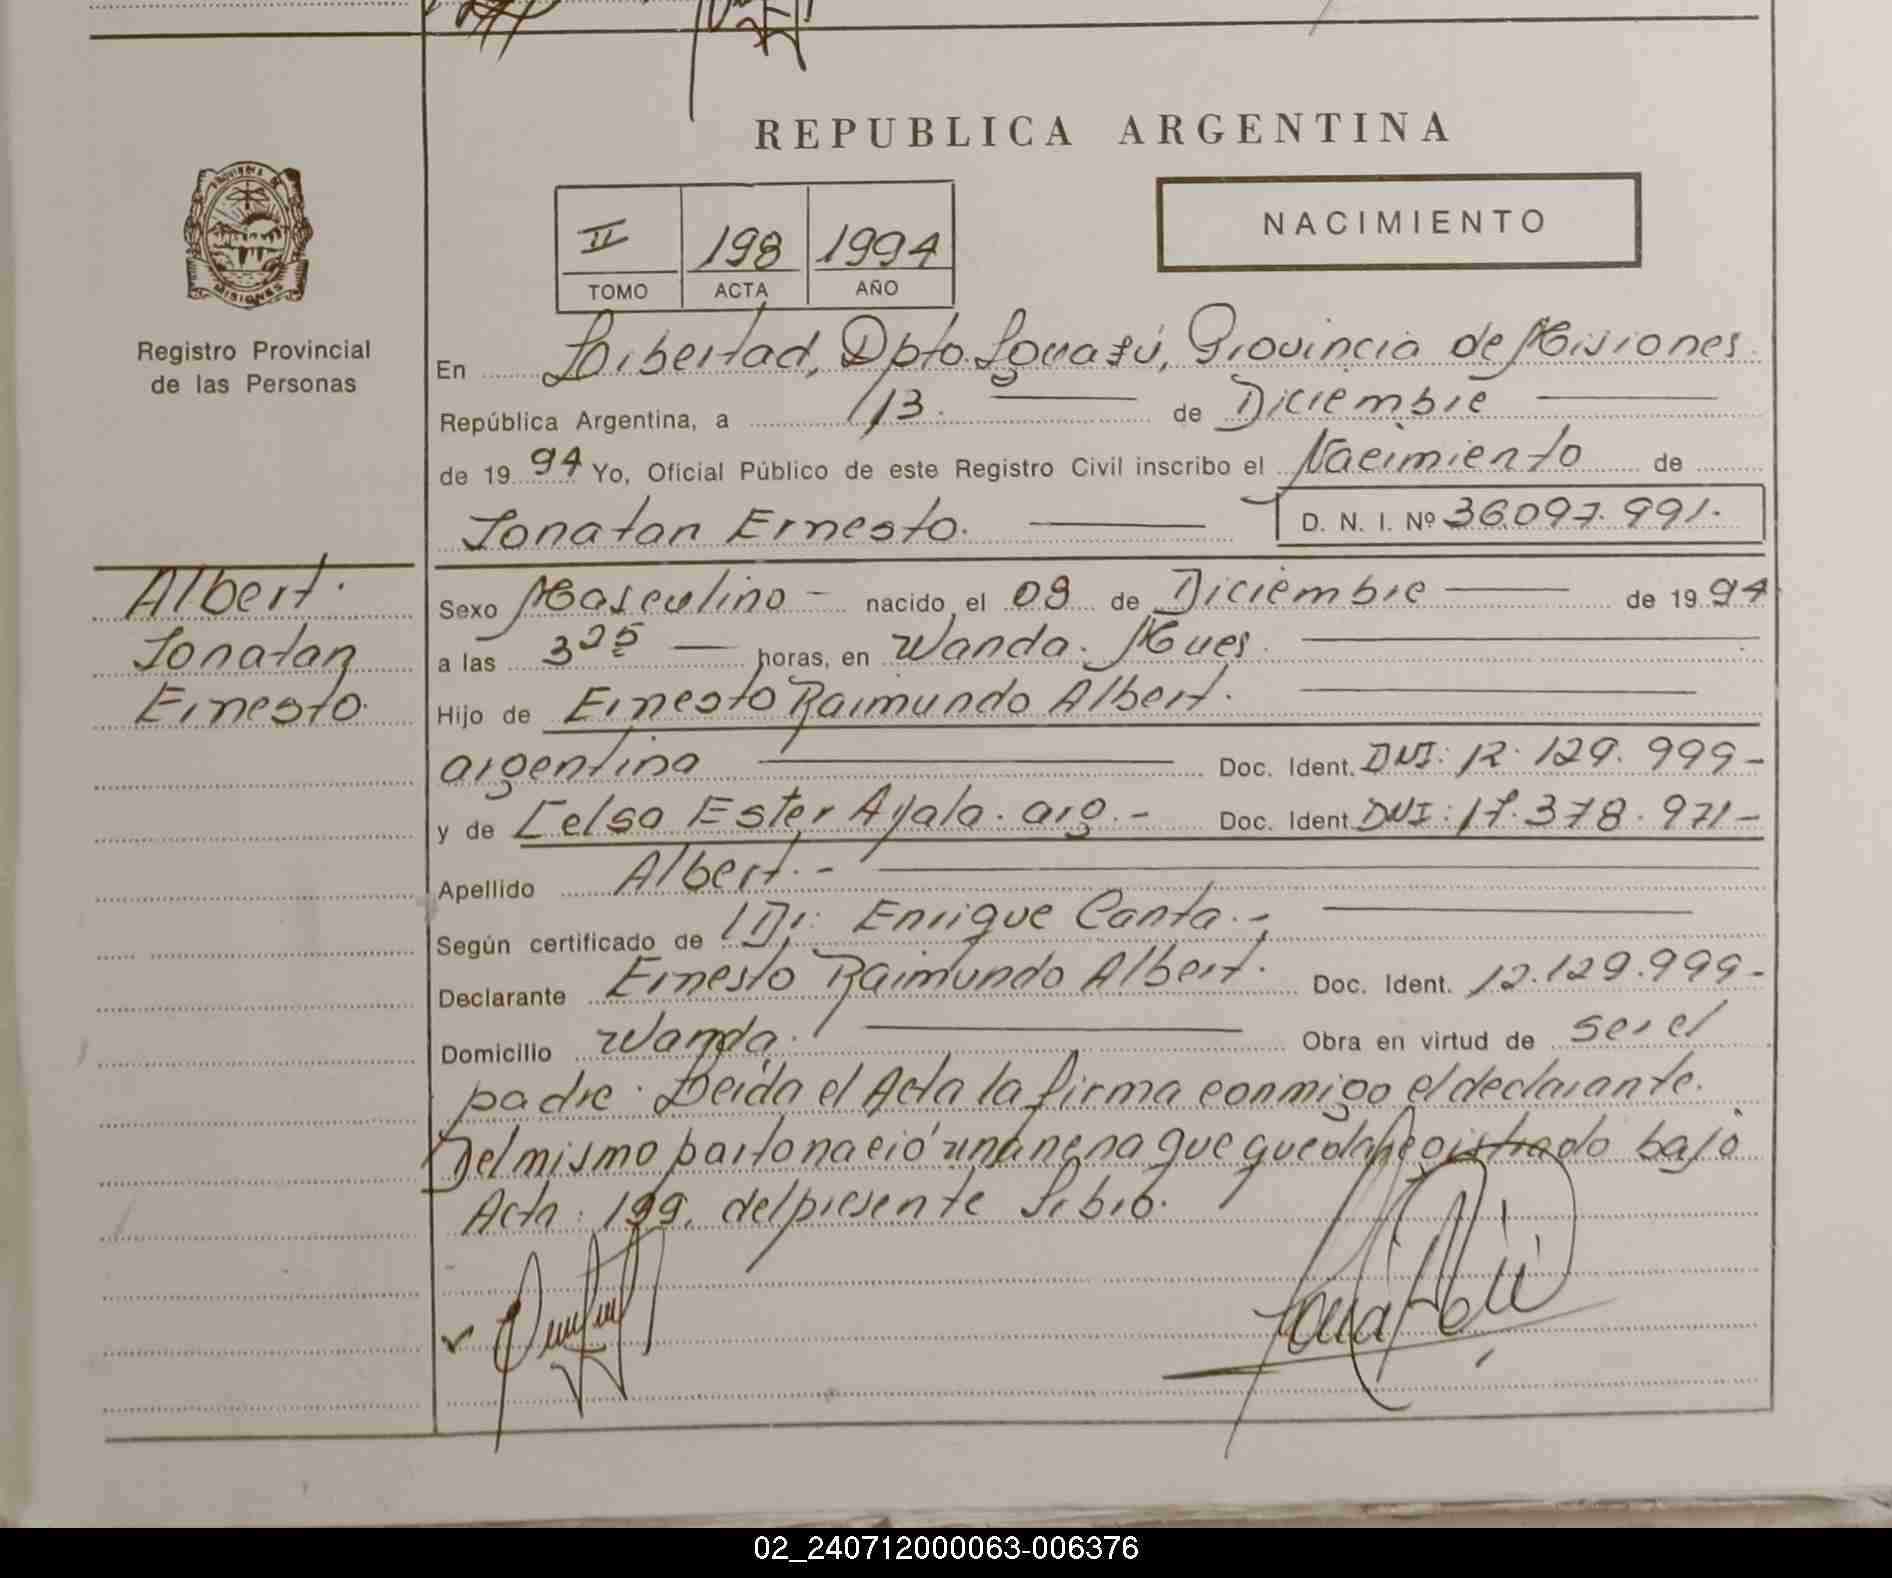 REPUBLICA ARGENTINA
NACIMIENTO
II 198 1994
TOMO ACTA AÑO
PROVINCIA DE MISIONES
Registro Provincial
de las Personas
En Libertad, Dpto. Iguazú, Provincia de Misiones
República Argentina, a 13. de Diciembre
de 1994 Yo, Oficial Público de este Registro Civil inscribo el Nacimiento de
Jonatan Ernesto. D. N. I. Nº 36.097.991.
Albert.
Jonatan
Ernesto.
Sexo Masculino - nacido el 09 de Diciembre de 1994
a las 3 25 horas, en Wanda. Mnes.
Hijo de Ernesto Raimundo Albert.
argentina Doc. Ident. DNI: 12.129.999-
y de Celsa Ester Ayala. arg.- Doc. Ident DNI: 17.378.971-
Apellido Albert.-
Según certificado de Dr. Enrique Canta.-
Declarante Ernesto Raimundo Albert. Doc. Ident. 12.129.999-
Domicilio Wanda. Obra en virtud de ser el
padre. Leída el Acta la firma conmigo el declarante.
Del mismo parto nació una nena que queda Registrado bajo
Acta: 199. del presente Libro.
02_240712000063-006376